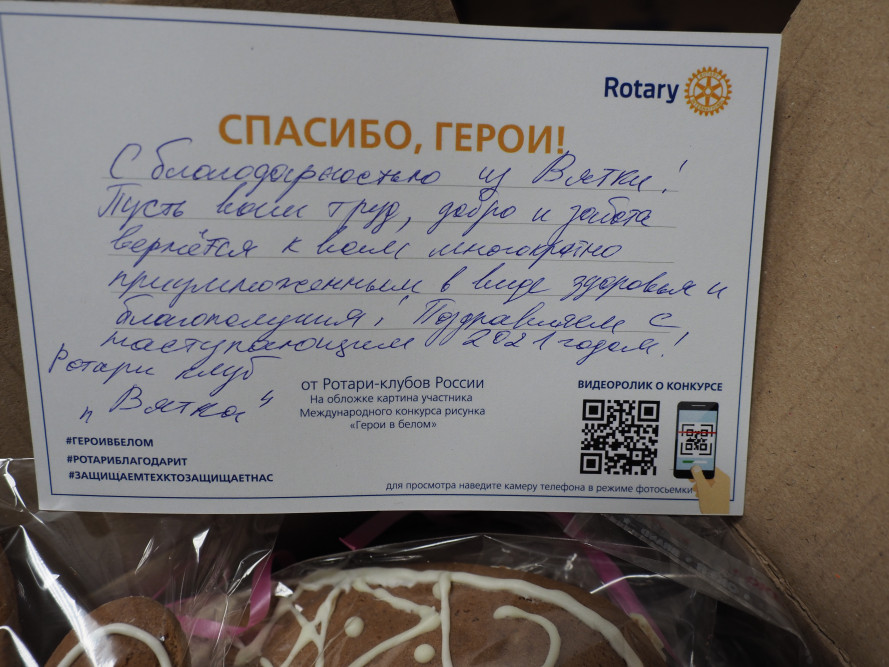 Rotary
СПАСИБО, ГЕРОИ!
С благодарностью из Вятки!
Пусть ваш труд, добро и забота
вернётся к вам многократно
приумноженным в виде здоровья и
благополучия! Поздравляем с
наступающим 2021 годом!
Ротари клуб
"Вятка"
от Ротари-клубов России
На обложке картина участника
Международного конкурса рисунка
«Герои в белом»
ВИДЕОРОЛИК О КОНКУРСЕ
#ГЕРОИВБЕЛОМ
#РОТАРИБЛАГОДАРИТ
#ЗАЩИЩАЕМТЕХКТОЗАЩИЩАЕТНАС
для просмотра наведите камеру телефона в режиме фотосьемки